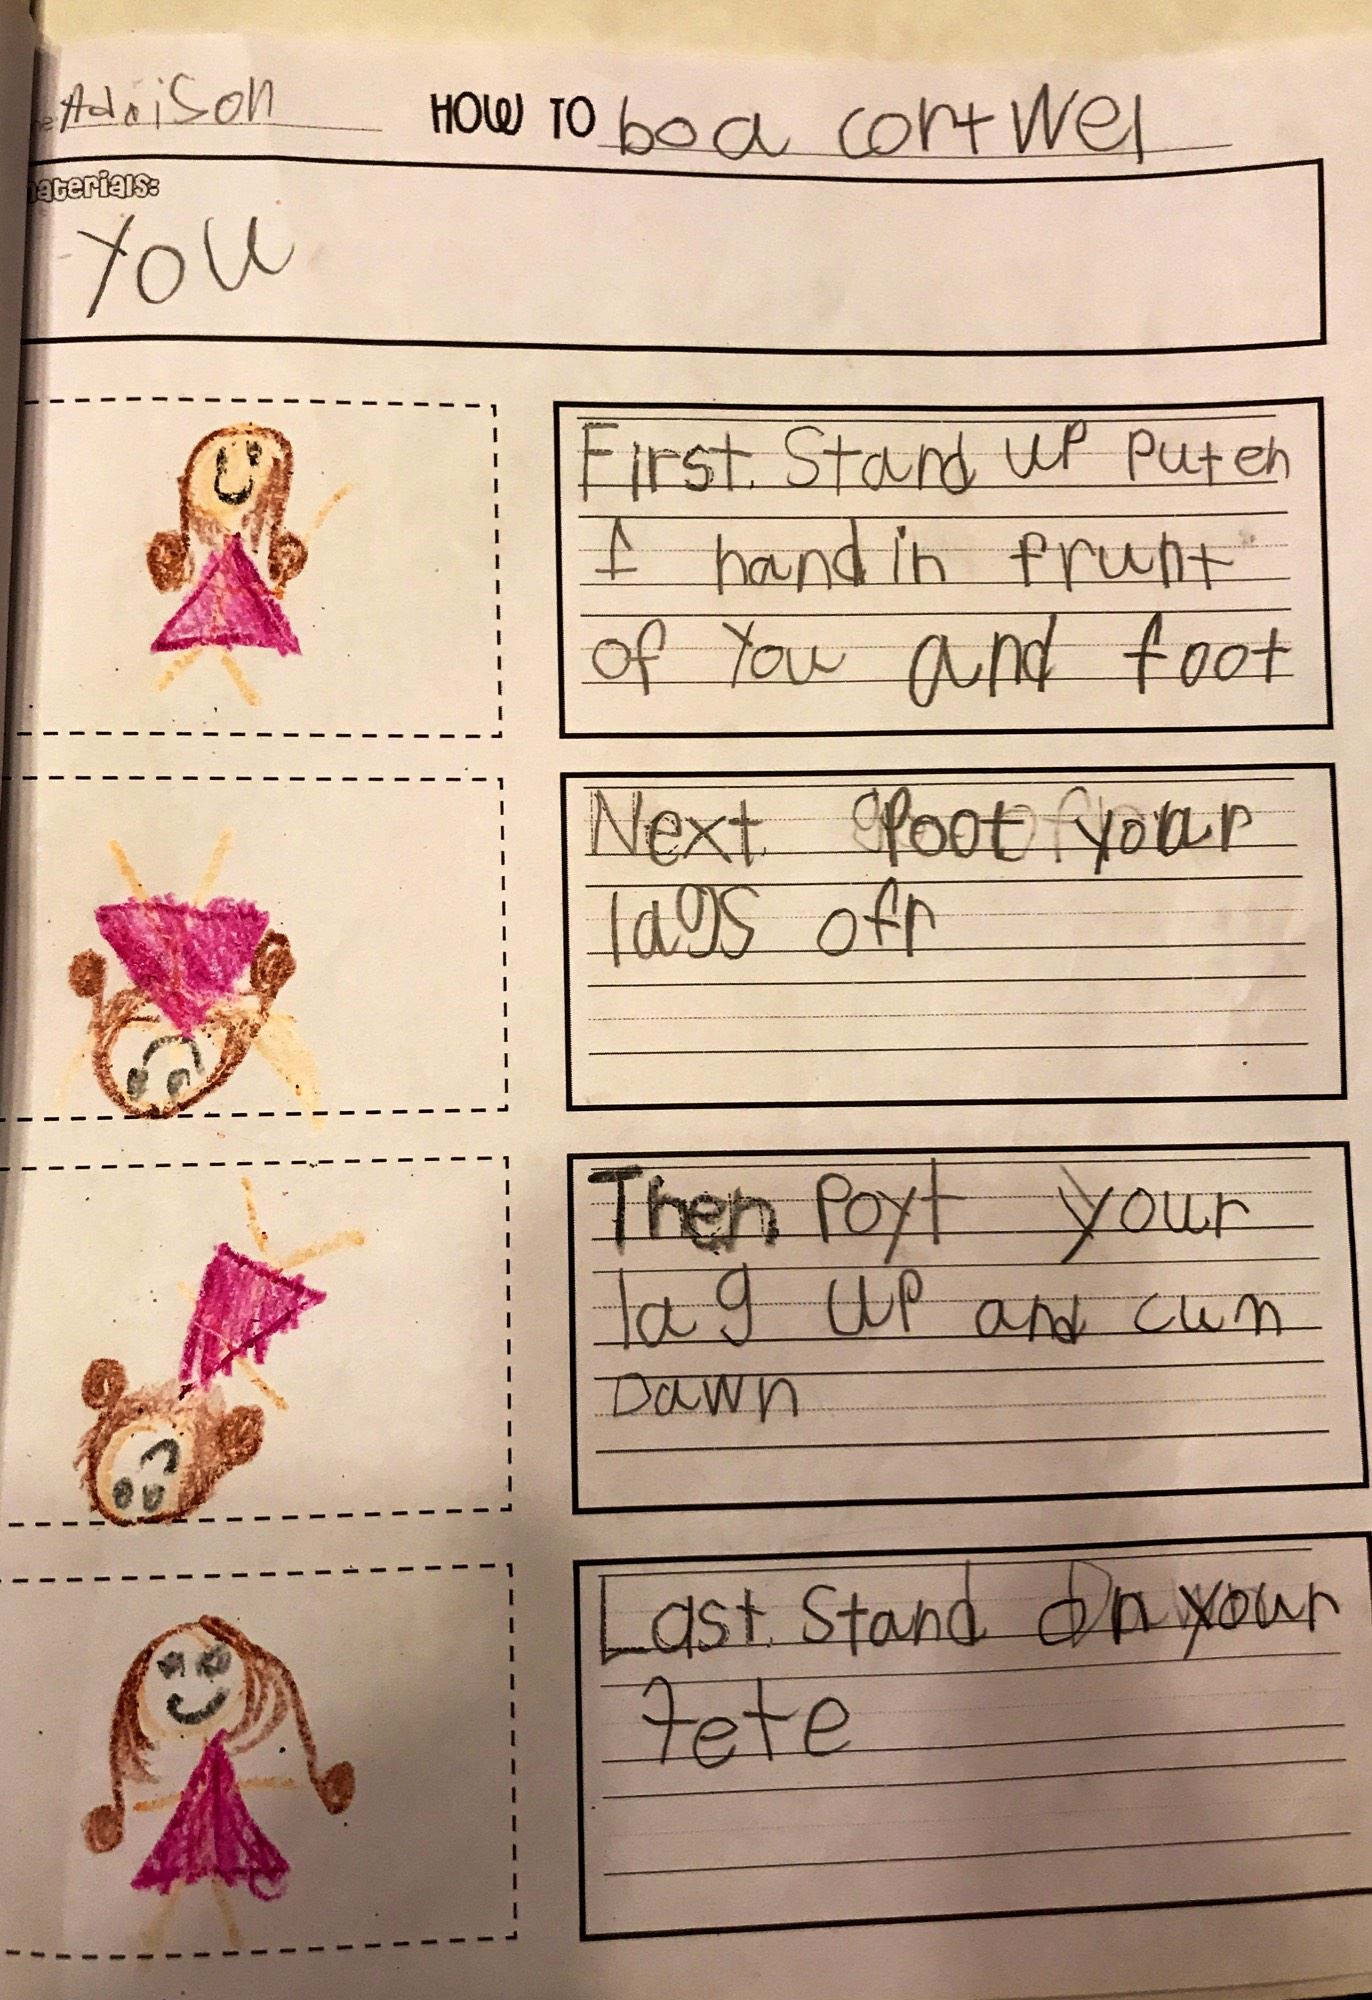 Addison HOW TO boa cortwel
materials:
You
First. Stand up put en
1 hand in frunt
of You and foot
Next. Poot your
lags ofr
Then Poyt your
lag up and cum
Dawn
Last. Stand On your
fete